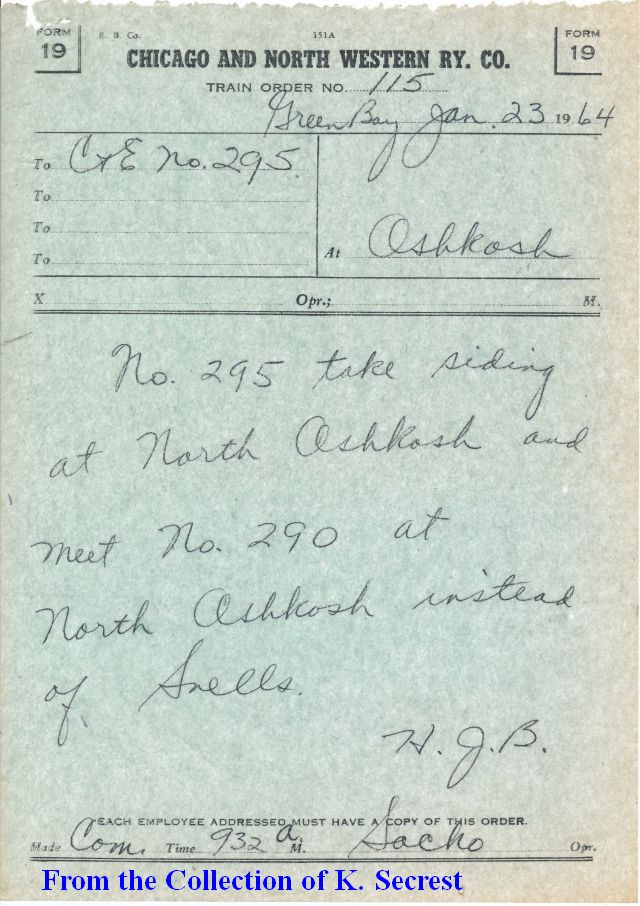 FORM 19
R. B. Co. 151A
FORM 19
CHICAGO AND NORTH WESTERN RY. CO.
TRAIN ORDER NO. 115
Green Bay Jan. 23 1964
To C&E No. 295.
To
To
To
At Oshkosh
X Opr.; M.
No. 295 take siding
at North Oshkosh and
meet No. 290 at
North Oshkosh instead
of Snells.
H. J. B.
EACH EMPLOYEE ADDRESSED MUST HAVE A COPY OF THIS ORDER.
Made Com. Time 932 a. M. Sacho Opr.
From the Collection of K. Secrest